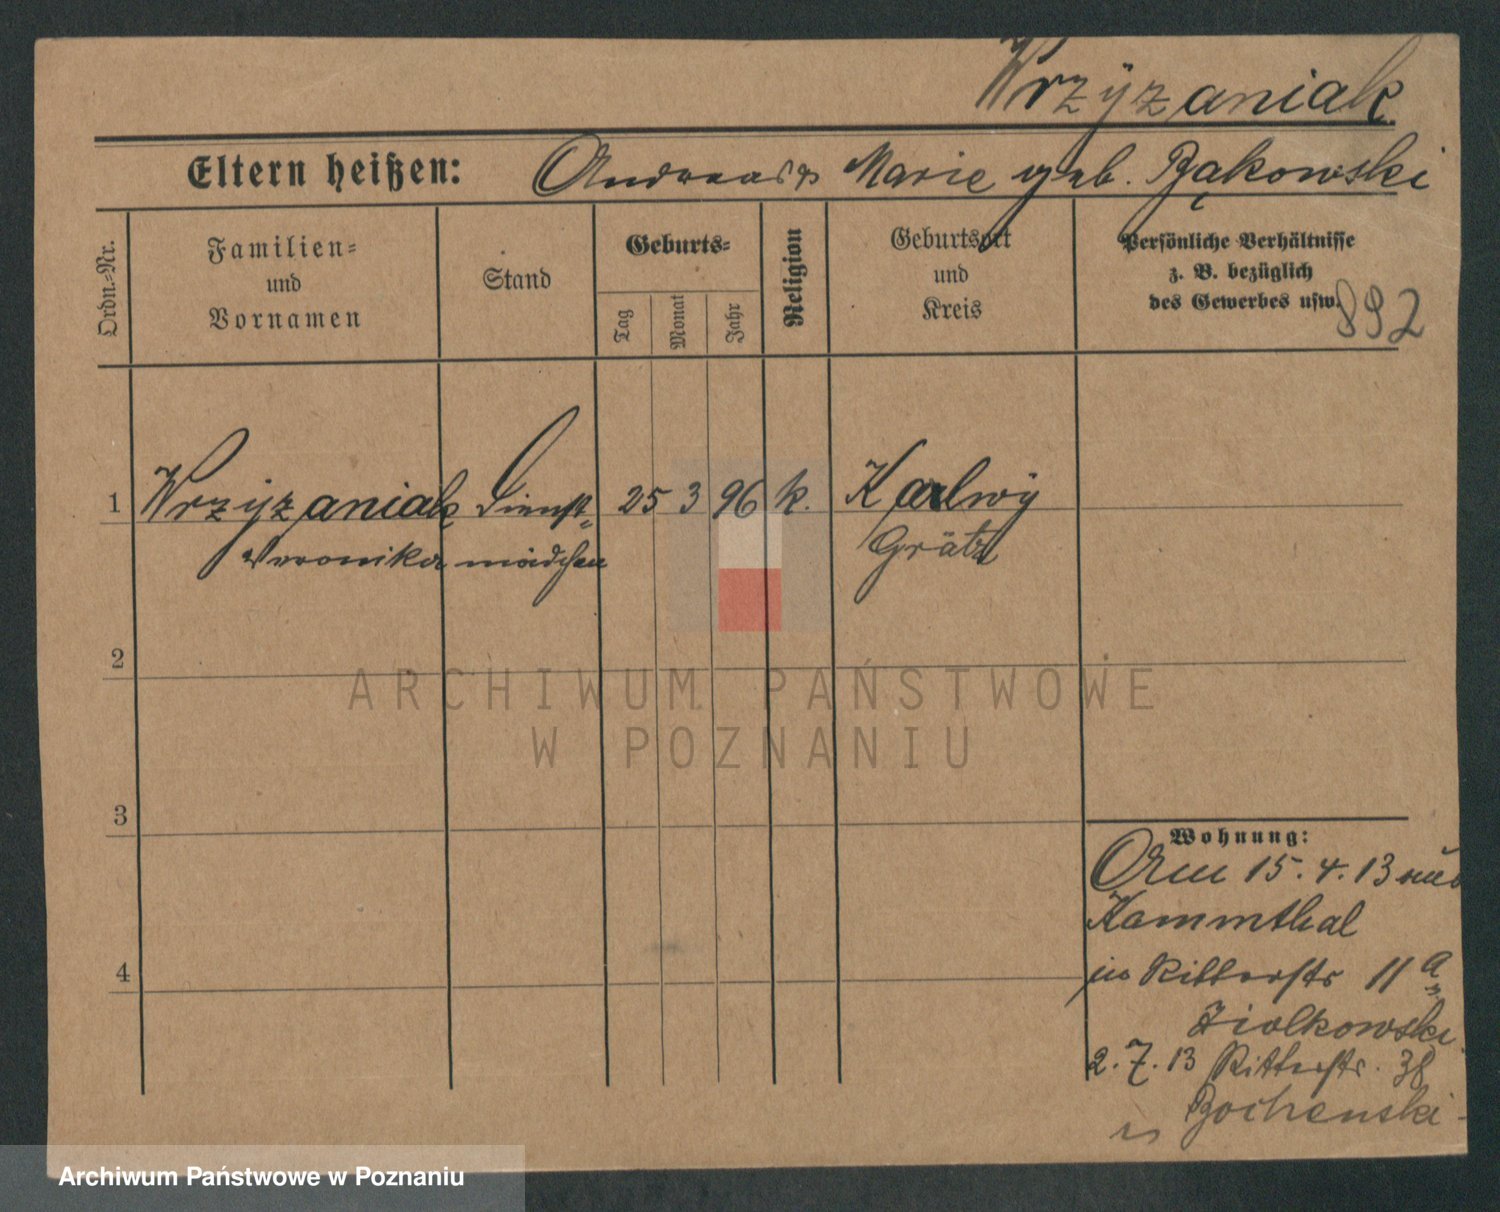 Wrzyzaniak
Eltern heißen: Andreas Marie geb. Bąkowski
Ordn.-Nr.
Familien-
und
Vornamen
Stand
Geburts-
Tag
Monat
Jahr
Religion
Geburtsort
und
Kreis
Persönliche Verhältnisse
z. B. bezüglich
des Gewerbes usw.
892
1 Wrzyzaniak Dienst- 25 3 96 k.
Veronika mädchen Grätz
2
ARCHIWUM PAŃSTWOWE
W POZNANIU
3
Wohnung:
Am 15.4.13 aus
Kammthal
in Ritterstr 11a
Ziolkowski
4
2.7.13 Ritterstr. 38
Bochenski
Archiwum Państwowe w Poznaniu